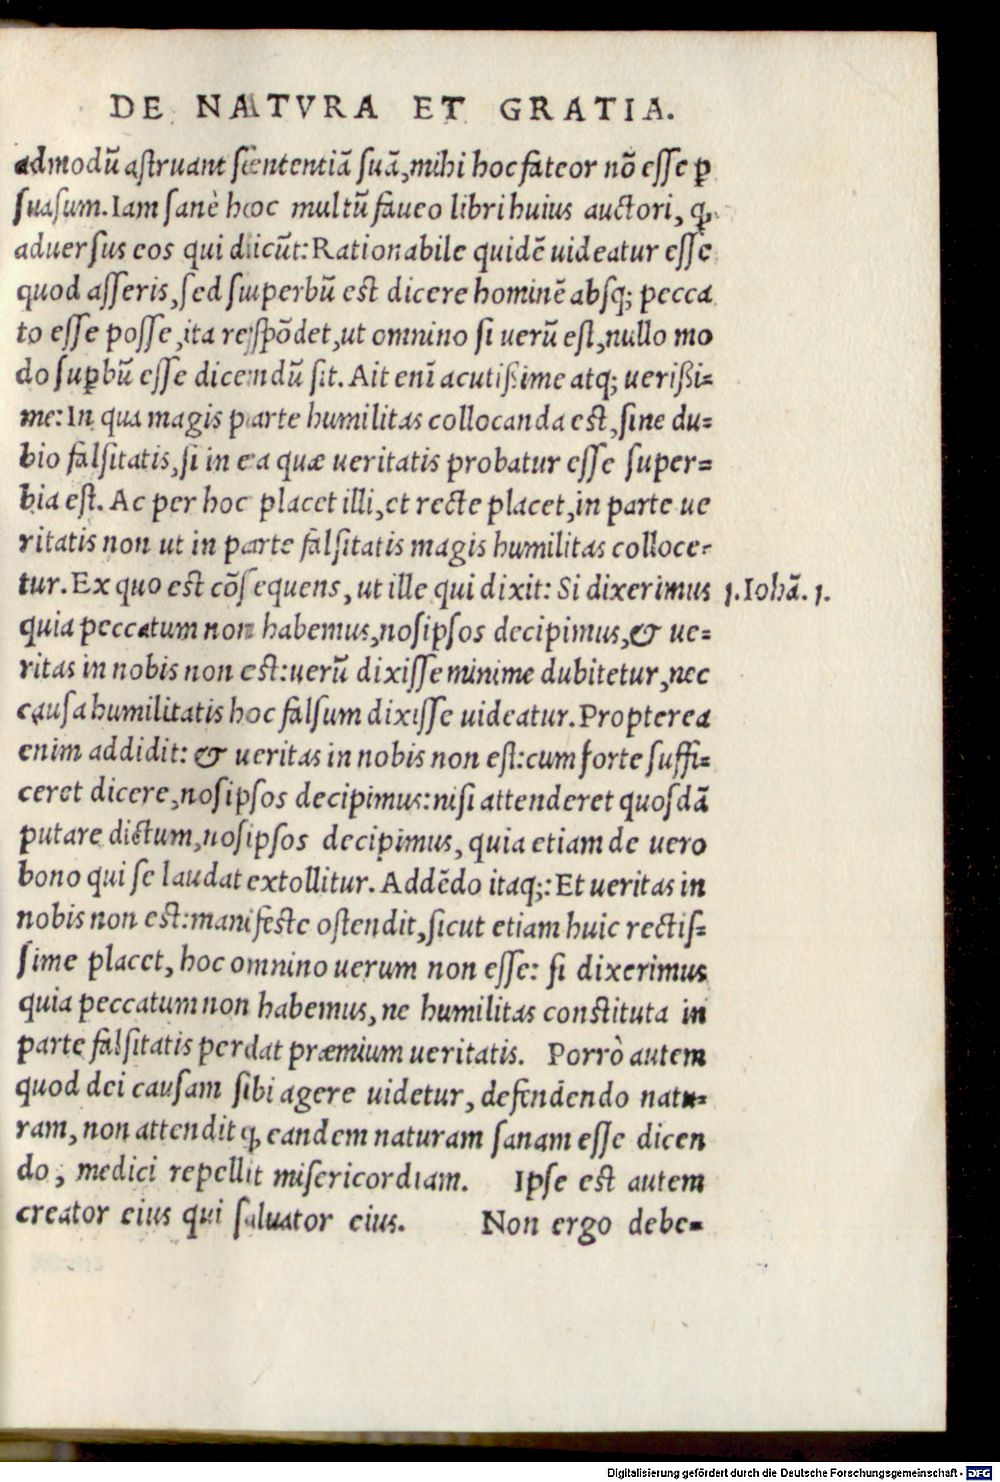 DE NATVRA ET GRATIA.
admodū aſtruant ſententiā ſuā, mihi hoc fateor nō eſſe ꝑ
ſuaſum. Iam ſanè hoc multū faueo libri huius auctori, ꝙ
aduerſus eos qui dicūt: Rationabile quidē uideatur eſſe
quod aſſeris, ſed ſuperbū eſt dicere hominē abſq; pecca
to eſſe poſſe, ita reſpōdet, ut omnino ſi uerū eſt, nullo mo
do ſuꝑbū eſſe dicendū ſit. Ait enī acutißime atq; uerißi=
me: In qua magis parte humilitas collocanda eſt, ſine du=
bio falſitatis, ſi in ea quæ ueritatis probatur eſſe ſuper=
bia eſt. Ac per hoc placet illi, et recte placet, in parte ue
ritatis non ut in parte falſitatis magis humilitas colloce=
tur. Ex quo eſt cōſequens, ut ille qui dixit: Si dixerimus 1. Iohā. 1.
quia peccatum non habemus, noſipſos decipimus, & ue=
ritas in nobis non eſt: uerū dixiſſe minime dubitetur, nec
cauſa humilitatis hoc falſum dixiſſe uideatur. Propterea
enim addidit: & ueritas in nobis non eſt: cum forte ſuffi=
ceret dicere, noſipſos decipimus: niſi attenderet quoſdā
putare dictum, noſipſos decipimus, quia etiam de uero
bono qui ſe laudat extollitur. Addēdo itaq;: Et ueritas in
nobis non eſt: manifeſte oſtendit, ſicut etiam huic rectiſ=
ſime placet, hoc omnino uerum non eſſe: ſi dixerimus
quia peccatum non habemus, ne humilitas conſtituta in
parte falſitatis perdat præmium ueritatis. Porrò autem
quod dei cauſam ſibi agere uidetur, defendendo natu=
ram, non attendit ꝙ eandem naturam ſanam eſſe dicen
do, medici repellit miſericordiam. Ipſe eſt autem
creator eius qui ſaluator eius. Non ergo debe=
Digitalisierung gefördert durch die Deutsche Forschungsgemeinschaft - DFG